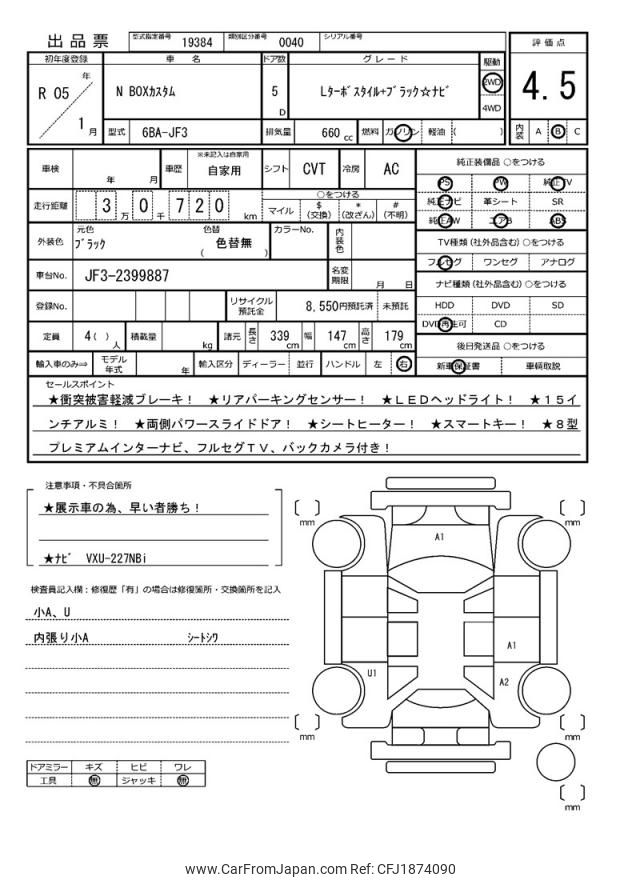 出品票 型式指定番号 19384 類別区分番号 0040 シリアル番号
初年度登録 車 名 ドア数 グレード 駆動 評価点
R 05 年 1 月 N BOXカスタム 5 D Lターボ スタイル+ブラック☆ナビ 2WD 4WD 4.5
型式 6BA-JF3 排気量 660 cc 燃料 ガソリン 軽油 ( ) 内装 A B C
車検 年 月 車歴 ※未記入は自家用 自家用 シフト CVT 冷房 AC
純正装備品 ○をつける
PS PW 純正TV
純正ナビ 革シート SR
純正AW エアB ABS
走行距離 3 万 0 千 7 2 0 km ○をつける マイル $ (交換) * (改ざん) # (不明)
外装色 元色 ブラック 色替 ( 色替無 ) カラーNo. 内装色
TV種類 (社外品含む) ○をつける
フルセグ ワンセグ アナログ
車台No. JF3-2399887 名変期限 月 日
ナビ種類 (社外品含む) ○をつける
HDD DVD SD
DVD再生可 CD
登録No. リサイクル預託金 8,550円預託済 未預託
定員 4( ) 人 積載量 kg 諸元 長さ 339 cm 幅 147 cm 高さ 179 cm
後日発送品 ○をつける
新車保証書 車輌取説
輸入車のみ⇒ モデル年式 年 輸入区分 ディーラー 並行 ハンドル 左 右
セールスポイント
★衝突被害軽減ブレーキ! ★リアパーキングセンサー! ★LEDヘッドライト! ★15イ
ンチアルミ! ★両側パワースライドドア! ★シートヒーター! ★スマートキー! ★8型
プレミアムインターナビ、フルセグTV、バックカメラ付き!
注意事項・不具合箇所
★展示車の為、早い者勝ち!
★ナビ VXU-227NBi
検査員記入欄:修復歴「有」の場合は修復箇所・交換箇所を記入
小A、U
内張り小A シートシワ
mm mm
A1
A1
U1 A2
mm mm
mm
ドアミラー キズ ヒビ ワレ
工具 無 ジャッキ 無
www.CarFromJapan.com Ref: CFJ1874090